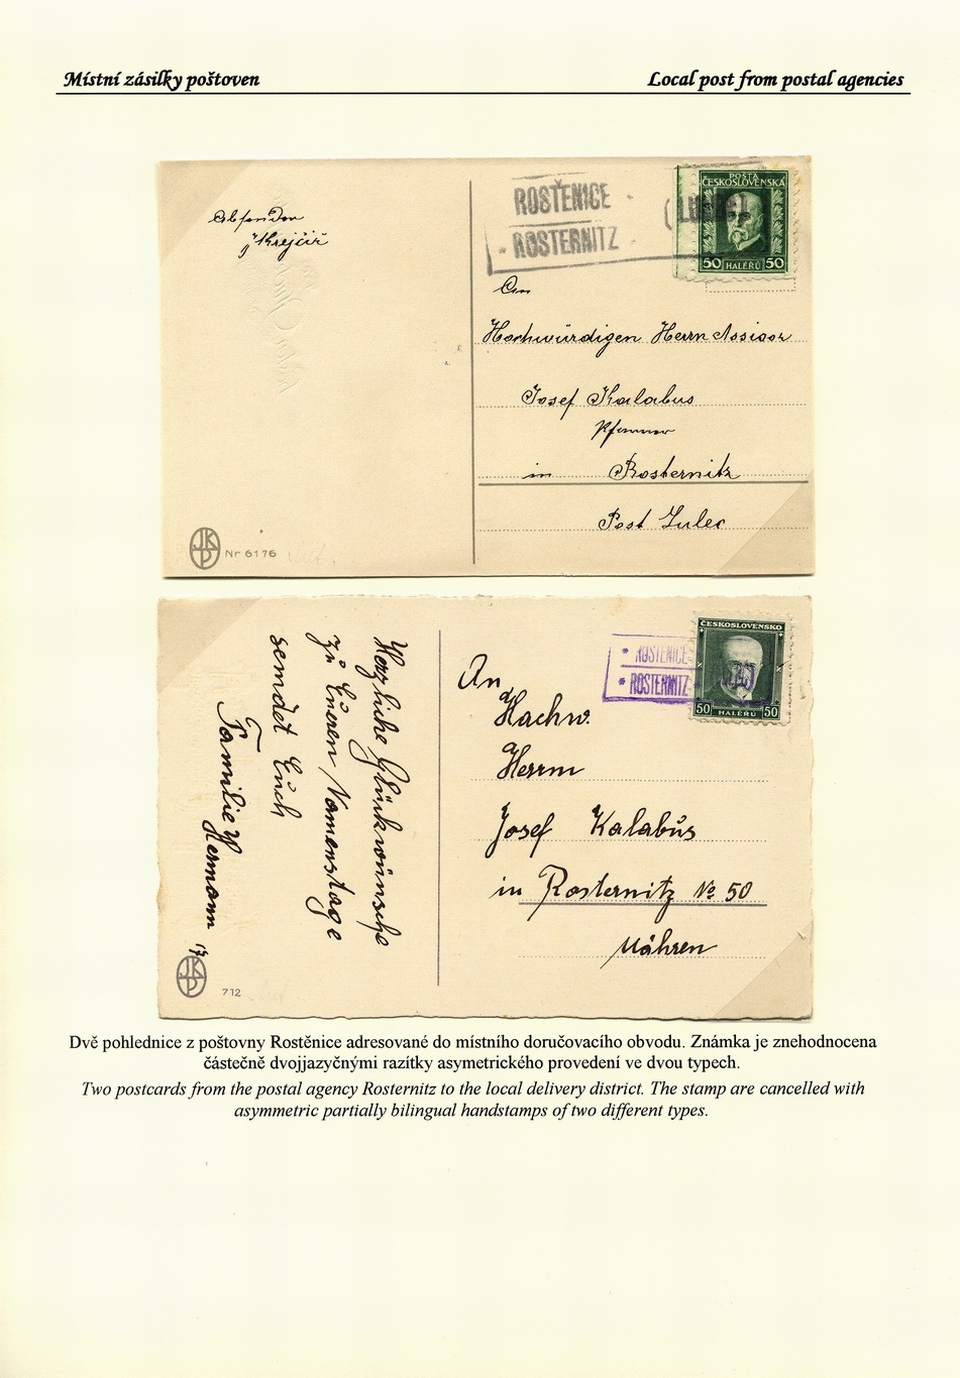 Místní zásilky poštoven
Local post from postal agencies
ROSTĚNICE
ROSTERNITZ
POŠTA
ČESKOSLOVENSKÁ
50 HALÉŘŮ 50
Krejčíř
An
Hochwürdigen Herrn Assisor
Josef Kalabus
Pfarrer
in Rosternitz
Post Lulec
JKP
Nr 6176
ROSTĚNICE
ROSTERNITZ
ČESKOSLOVENSKO
50 HALÉŘŮ 50
Herzliche Glückwünsche
zu Eueren Namenstage
sendet Euch
Familie Hermann
An
Hochw.
Herrn
Josef Kalabus
in Rosternitz No 50
Mähren
JKP
712
Dvě pohlednice z poštovny Rostěnice adresované do místního doručovacího obvodu. Známka je znehodnocena
částečně dvojjazyčnými razítky asymetrického provedení ve dvou typech.
Two postcards from the postal agency Rosternitz to the local delivery district. The stamp are cancelled with
asymmetric partially bilingual handstamps of two different types.